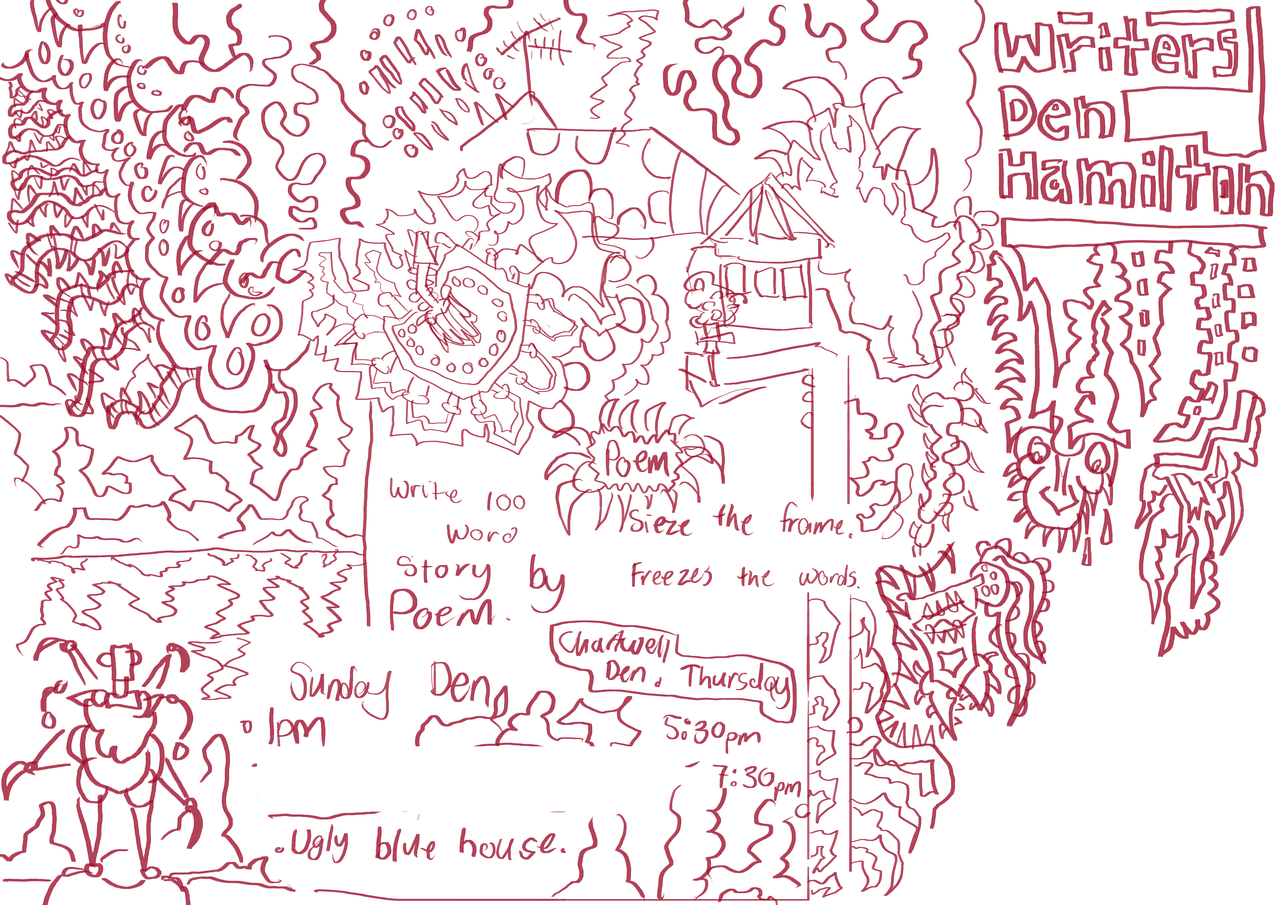 Writers
Den
Hamilton
Poem
Write 100
Word
Story by
Poem.
Sieze the frame.
Freezes the words.
Chartwell
Den. Thursday
Sunday Den
1pm
5:30pm
- 7:30pm
.Ugly blue house.